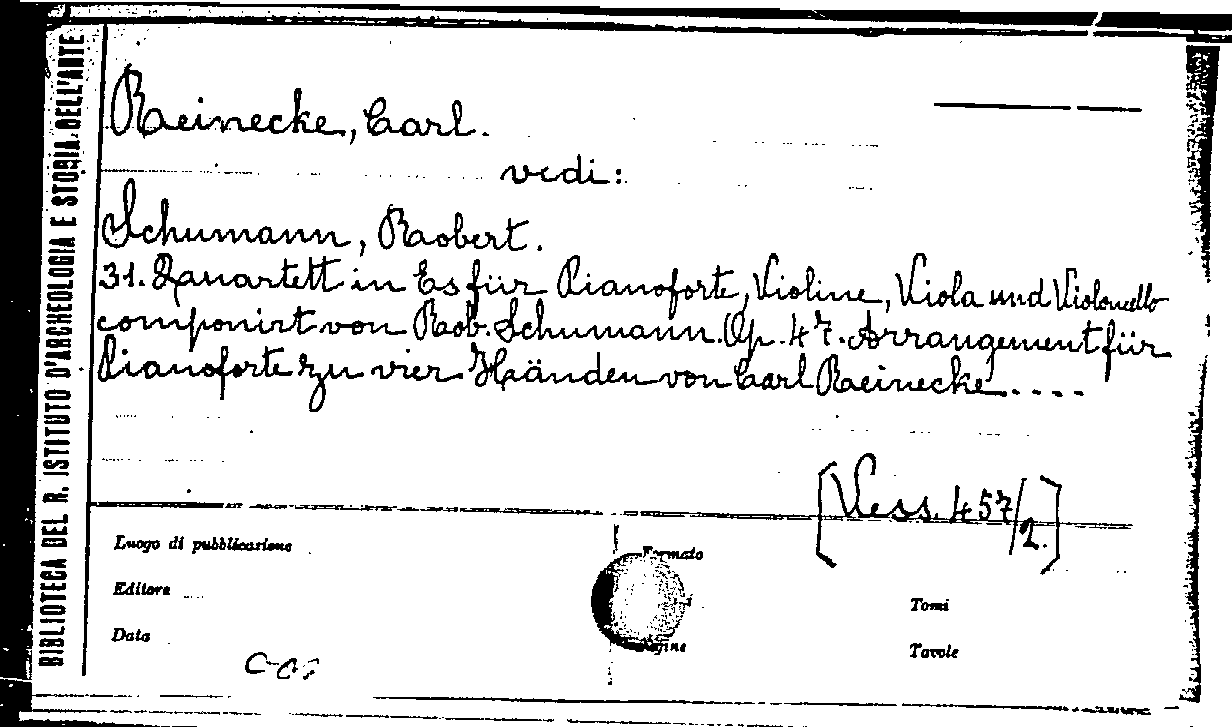 BIBLIOTECA DEL R. ISTITUTO D'ARCHEOLOGIA E STORIA DELL'ARTE
Reinecke, Carl.
vedi:
Schumann, Robert.
31. Quartett in Es für Pianoforte, Violine, Viola und Violoncello
componirt von Rob. Schumann. Op. 47. Arrangement für
Pianoforte zu vier Händen von Carl Reinecke....
[Vess. 457/2.]
Luogo di pubblicazione
Formato
Editore
Tomi
Data
Tavole